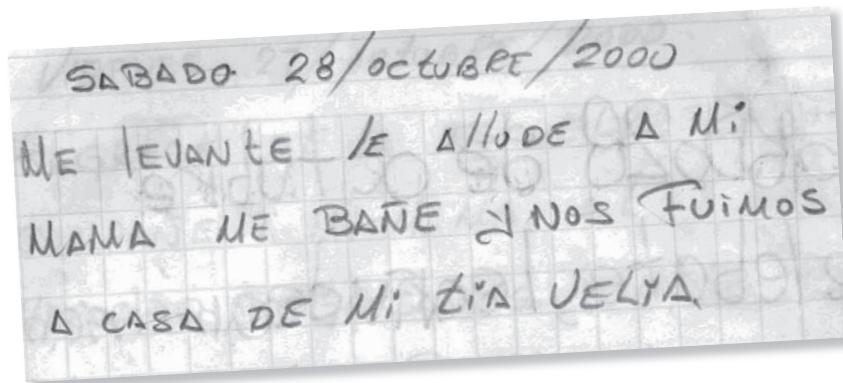 SABADO 28/OCTUBRE/2000
ME LEVANTE LE ALLUDE A MI
MAMA ME BAÑE Y NOS FUIMOS
A CASA DE MI TIA VELYA.